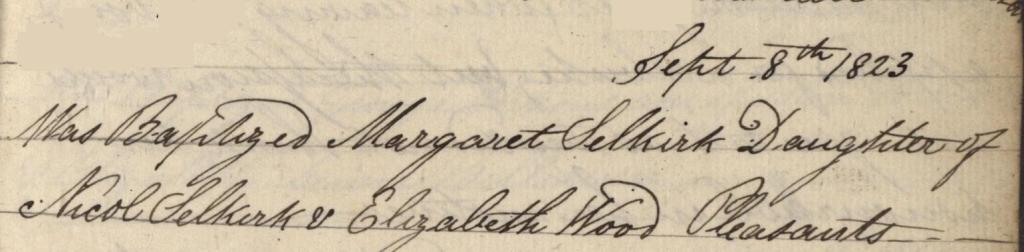 Sept 8th 1823
Was Baptized Margaret Selkirk Daughter of
Nicol Selkirk & Elizabeth Wood Pleasants